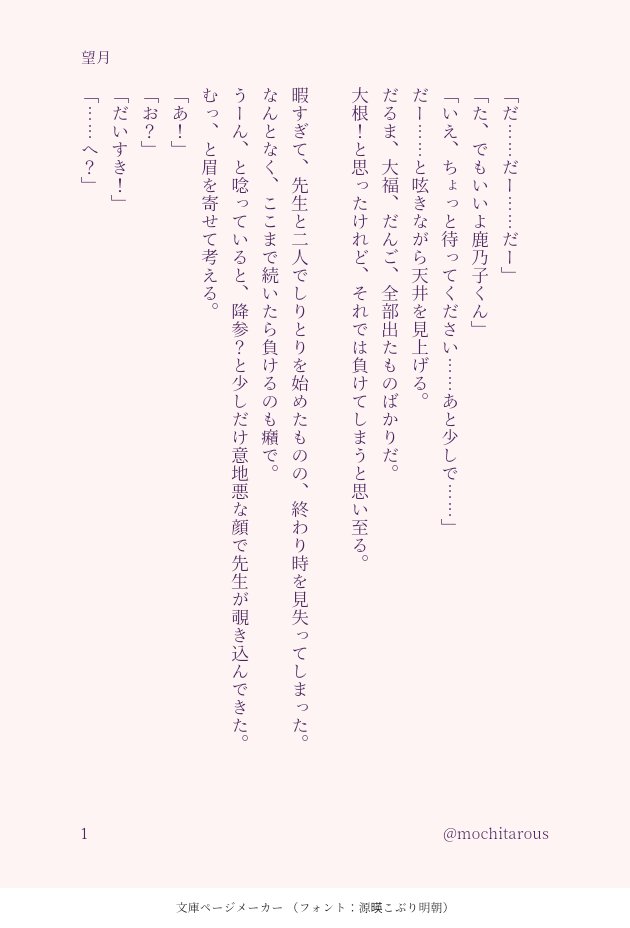 望月
「だ……だー……だー」
「た、でもいいよ鹿乃子くん」
「いえ、ちょっと待ってください……あと少しで……」
だー……と呟きながら天井を見上げる。
だるま、大福、だんご、全部出たものばかりだ。
大根！と思ったけれど、それでは負けてしまうと思い至る。
暇すぎて、先生と二人でしりとりを始めたものの、終わり時を見失ってしまった。
なんとなく、ここまで続いたら負けるのも癪で。
うーん、と唸っていると、降参？と少しだけ意地悪な顔で先生が覗き込んできた。
むっ、と眉を寄せて考える。
「あ！」
「お？」
「だいすき！」
「……へ？」
1
@mochitarous
文庫ページメーカー （フォント：源暎こぶり明朝）